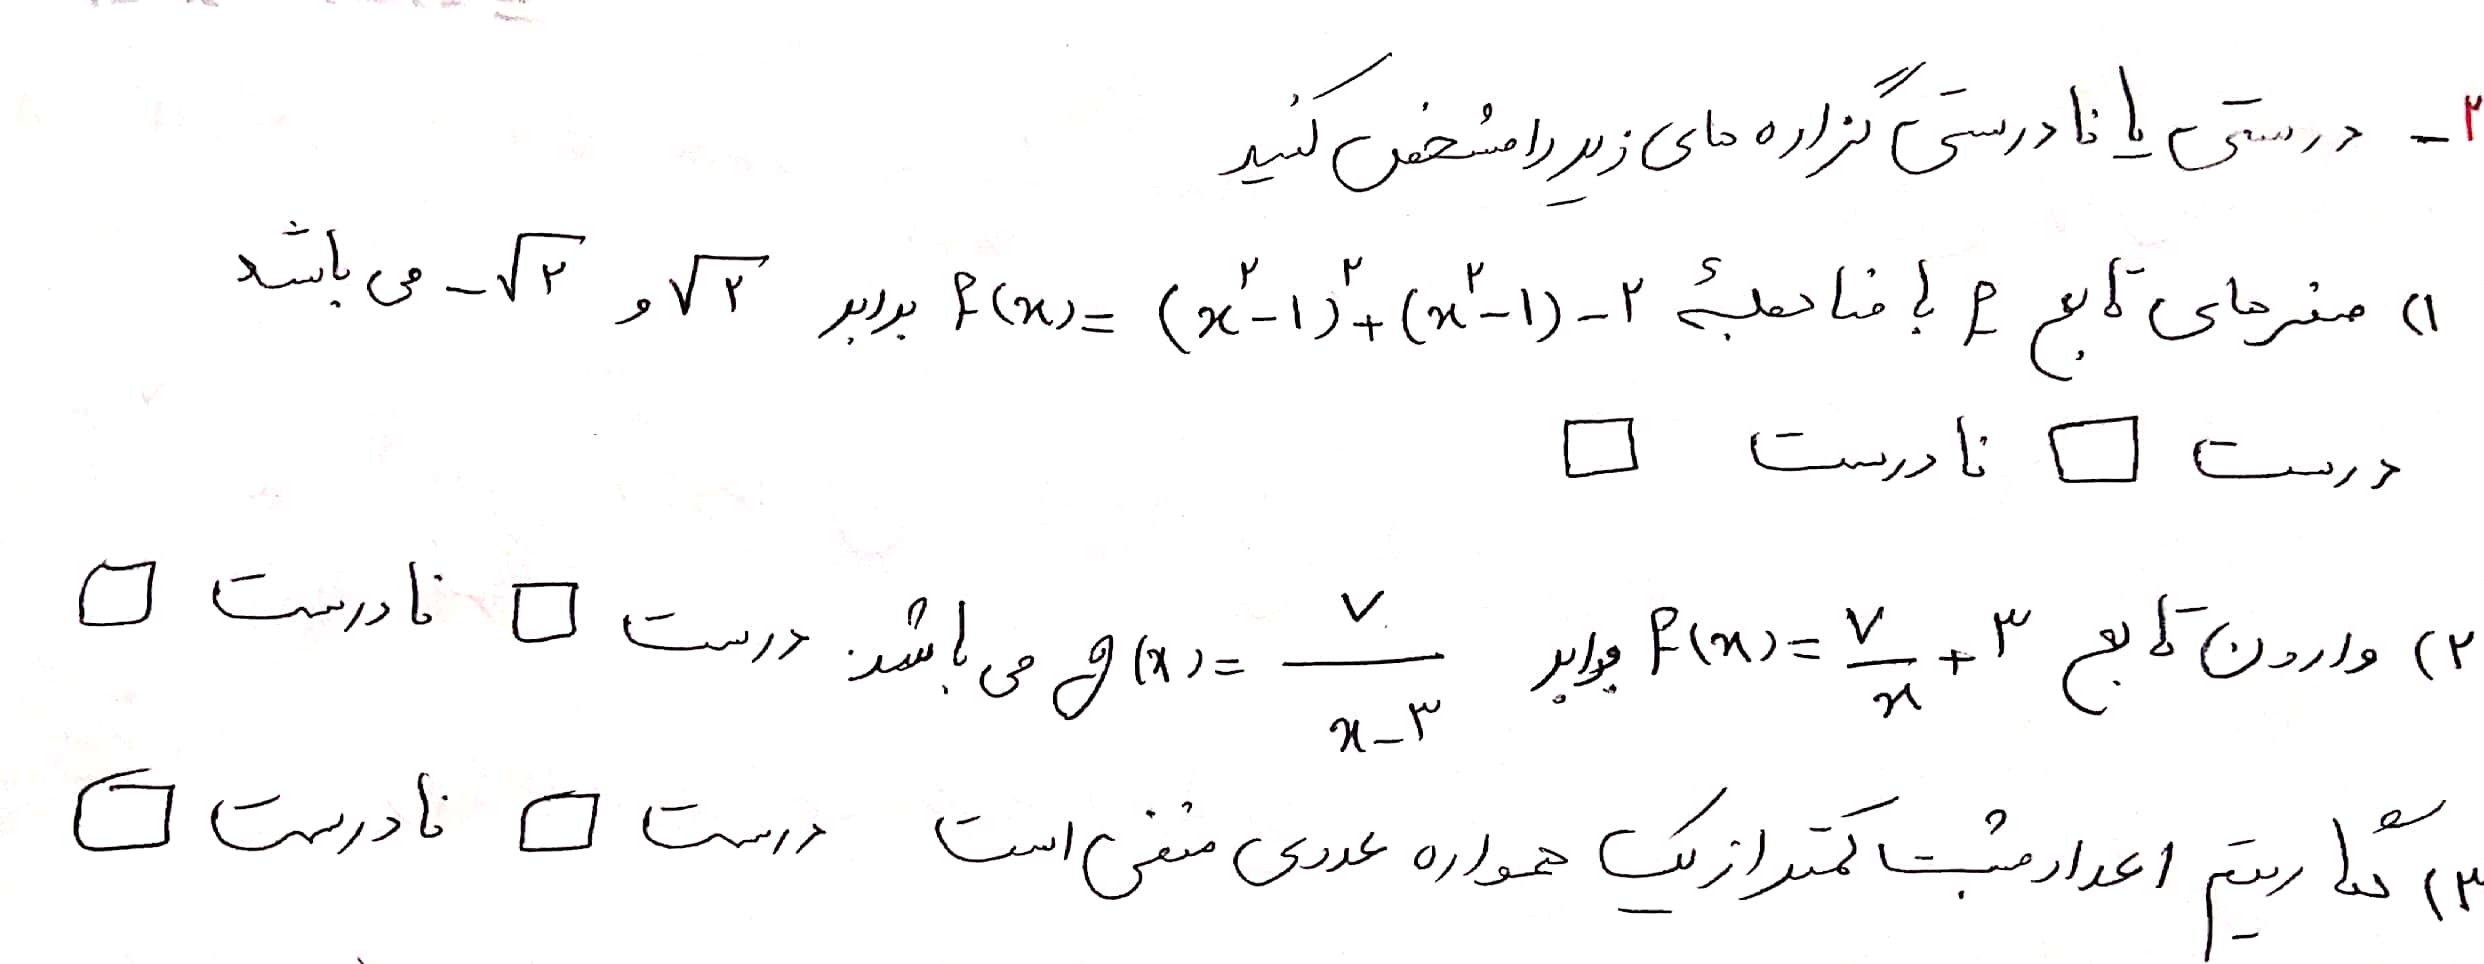 ۲- درستی یا نادرستی گزاره های زیر را مشخص کنید
۱) صفرهای تابع f با ضابطهٔ f(x) = (x²-۱)² + (x²-۱) - ۲ برابر √۲ و -√۲ می باشد
درست □ نادرست □
۲) وارون تابع f(x) = ۷/x + ۳ برابر g(x) = ۷/(x-۳) می باشد. درست □ نادرست □
۳) لگاریتم اعداد مثبت کمتر از یک همواره عددی منفی است درست □ نادرست □